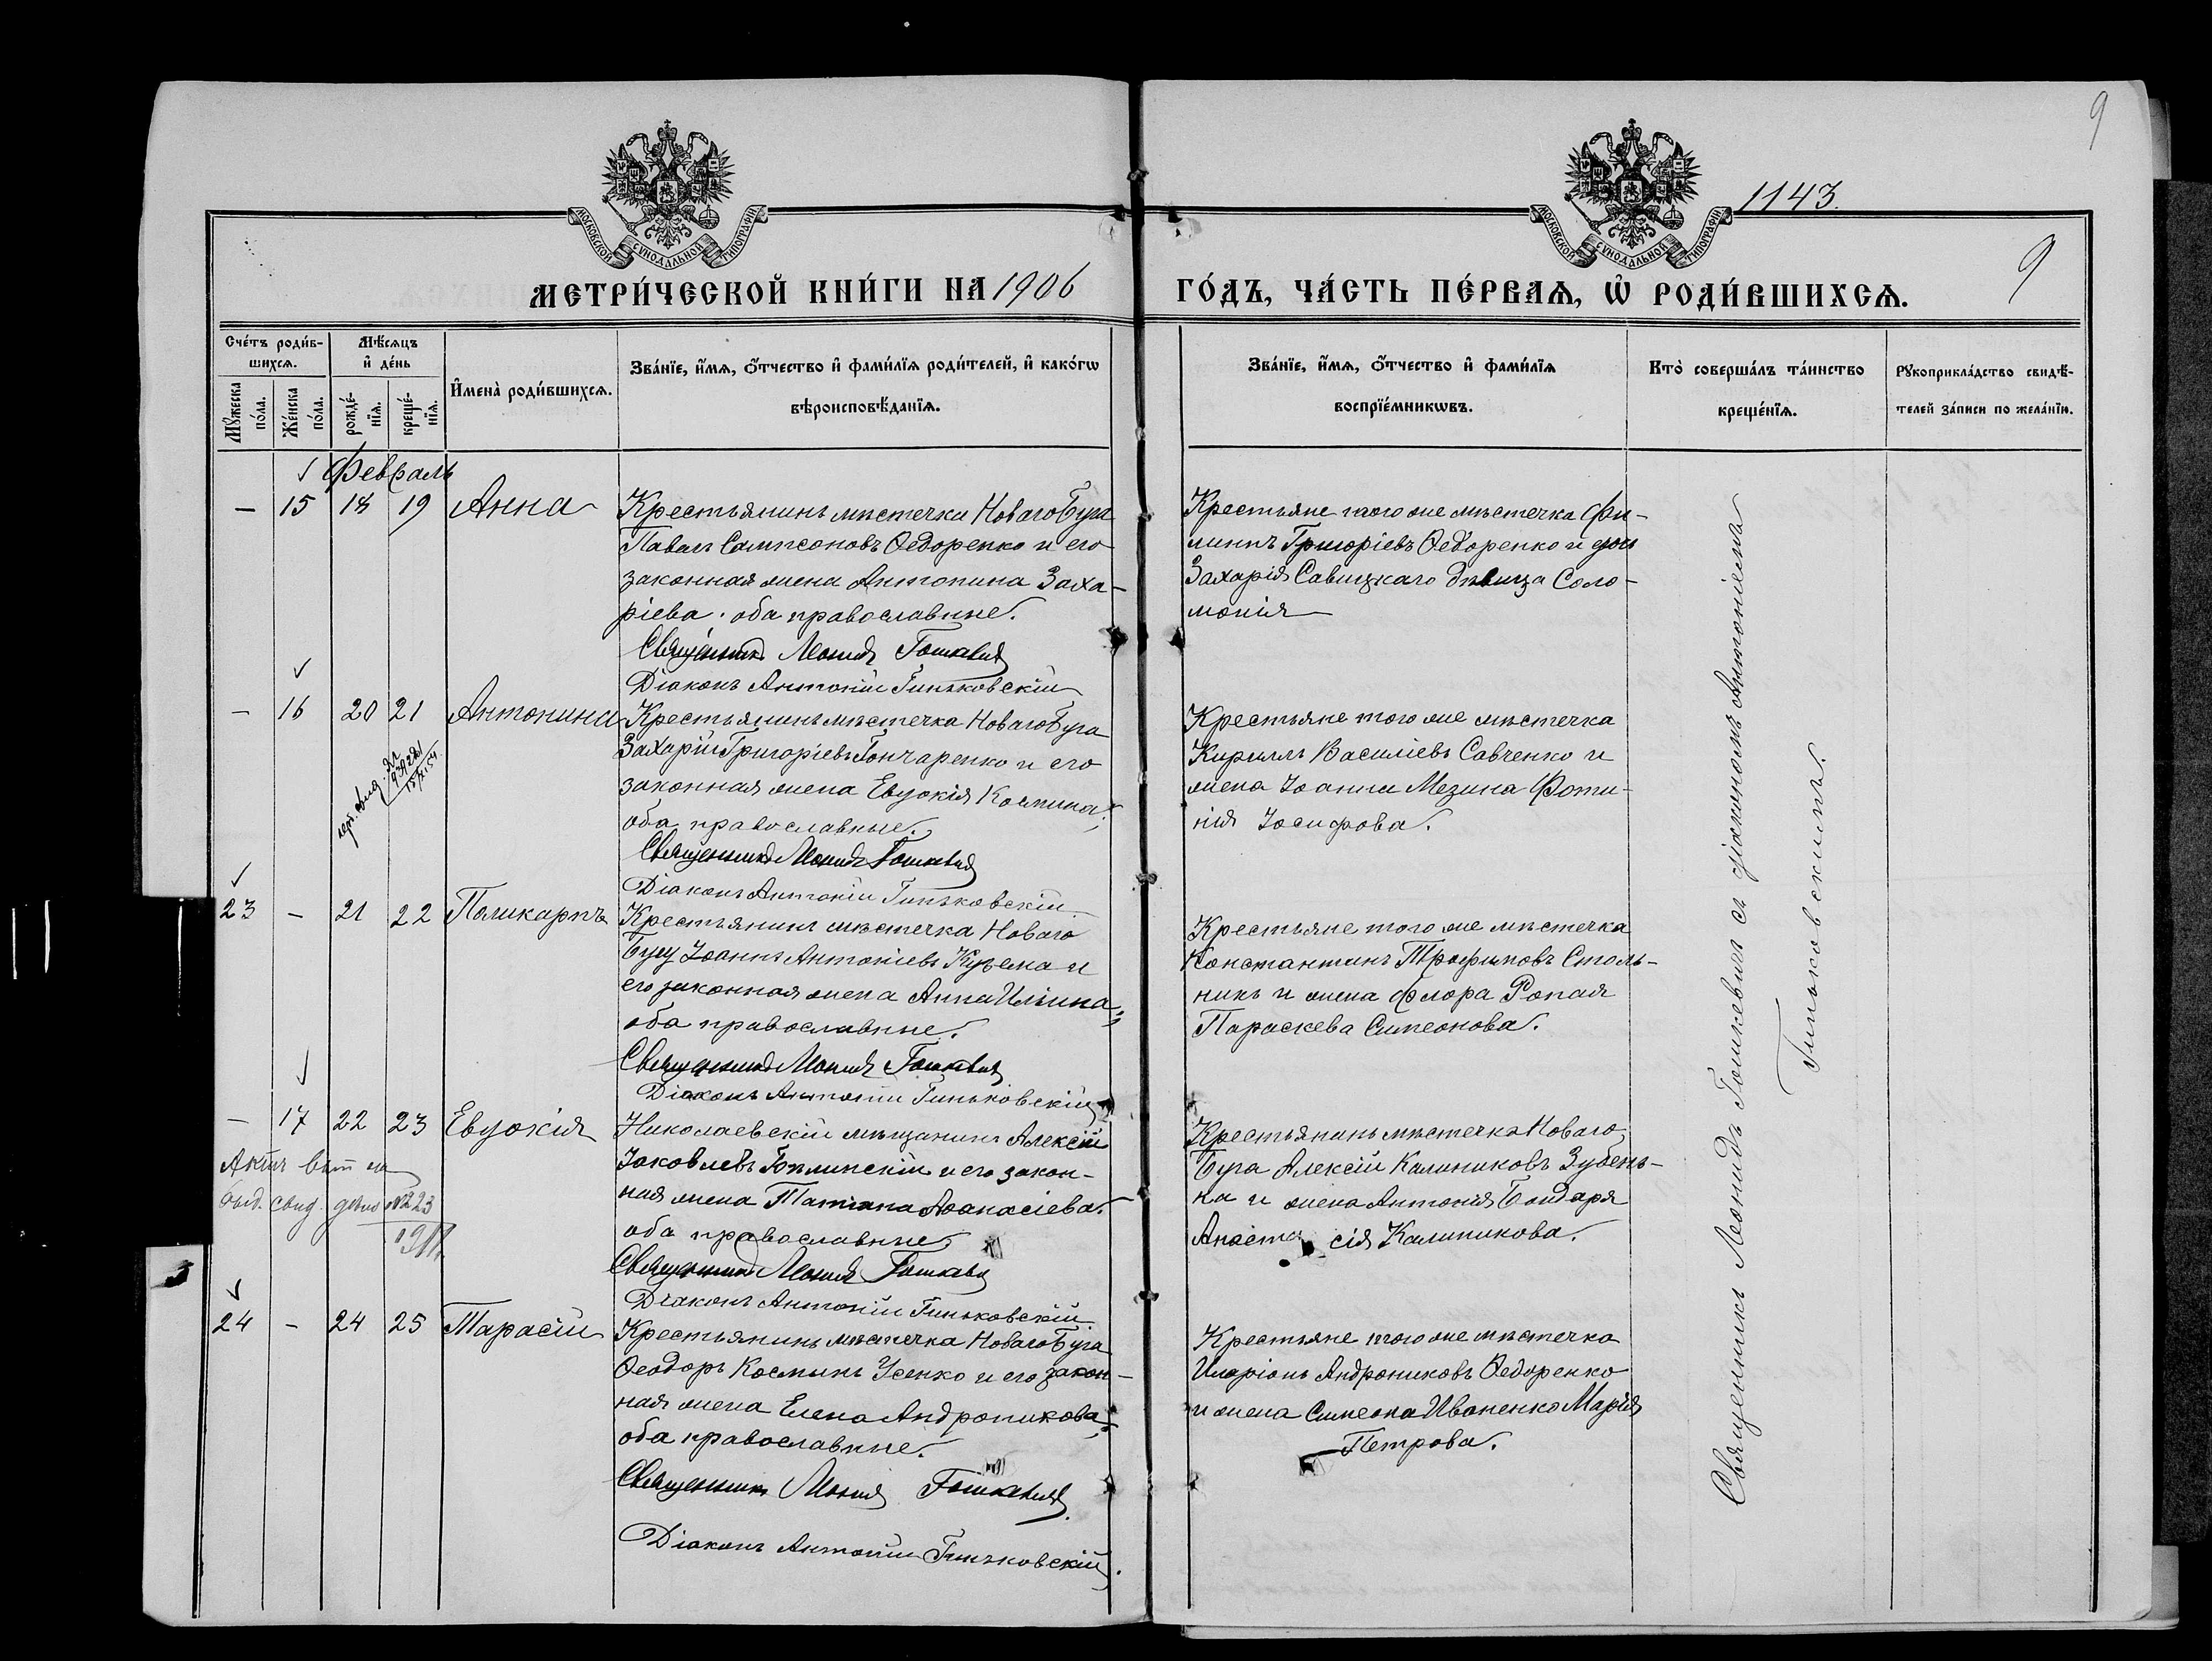 9
1143.
9
МОСКОВСКОЙ СУНОДАЛЬНОЙ ТИПОГРАФІИ
МОСКОВСКОЙ СУНОДАЛЬНОЙ ТИПОГРАФІИ
МЕТРИ́ЧЕСКОЙ КНИ́ГИ НА 1906 ГО́ДЪ, ЧА́СТЬ ПЕ́РВАѦ, Ѡ҆ РОДИ́ВШИХСѦ.
Сче́тъ роди́в-
шихсѧ.
Мꙋ́жеска
по́ла.
Же́нска
по́ла.
Мѣ́сѧцъ
и҆ де́нь
рожде́-
нїѧ.
креще́-
нїѧ.
И҆мена̀ роди́вшихсѧ.
Зва́нїе, и҆́мѧ, ѻ҆́тчество и҆ фами́лїѧ роди́телей, и҆ како́гѡ
вѣроисповѣ́данїѧ.
Зва́нїе, и҆́мѧ, ѻ҆́тчество и҆ фами́лїѧ
воспрїе́мникѡвъ.
Кто̀ соверша́лъ та́инство
креще́нїѧ.
Рꙋкоприкла́дство свидѣ́-
телей за́писи по жела́нїю.
Февраль
— 15 18 19 Анна
Крестьянинъ мѣстечка Новаго Буга
Павелъ Сампсоновъ Ѳедоренко и его
законная жена Антонина Заха-
ріева, оба православные.
Священникъ Леонидъ Гошкевичъ
Діаконъ Антоній Гиньковскій
Крестьяне того же мѣстечка Фи-
липпъ Григоріевъ Ѳедоренко и дочь
Захарія Савицкаго дѣвица Соло-
монія
— 16 20 21 Антонина
Крестьянинъ мѣстечка Новаго Буга
Захарій Григоріевъ Гончаренко и его
законная жена Евдокія Космина,
оба православные.
Священникъ Леонидъ Гошкевичъ
Діаконъ Антоній Гиньковскій.
Крестьяне того же мѣстечка
Кириллъ Василіевъ Савченко и
жена Іоанна Мезина Фоти-
нія Іосифова.
23 — 21 22 Поликарпъ
Крестьянинъ мѣстечка Новаго
Бугу Іоаннъ Антоніевъ Кузема и
его законная жена Анна Ильина,
оба православные.
Священникъ Леонидъ Гошкевичъ
Діаконъ Антоній Гиньковскій
Крестьяне того же мѣстечка
Константинъ Трофимовъ Столь-
никъ и жена Флора Ропая
Параскева Симеонова.
— 17 22 23 Евдокія
Николаевскій мѣщанинъ Алексій
Іаковлевъ и его закон-
ная жена Татіана Аѳанасіева,
оба православные
Священникъ Леонидъ Гошкевичъ
Діаконъ Антоній Гиньковскій.
Крестьянинъ мѣстечка Новаго
Буга Алексій Калиниковъ Зубень-
ка и жена Антонія Бондаря
Анастасія Калиникова.
24 — 24 25 Тарасій
Крестьянинъ мѣстечка Новаго Буга
Ѳеодоръ Косминъ Усенко и его закон-
ная жена Елена Андроникова,
оба православные.
Священникъ Леонидъ Гошкевичъ
Діаконъ Антоній Гиньковскій.
Крестьяне того же мѣстечка
Иларіонъ Андрониковъ Ѳедоренко
и жена Симеона Иваненко Марія
Петрова.
Священникъ Леонидъ Гошкевичъ съ діакономъ Антоніемъ
Гиньковскимъ.